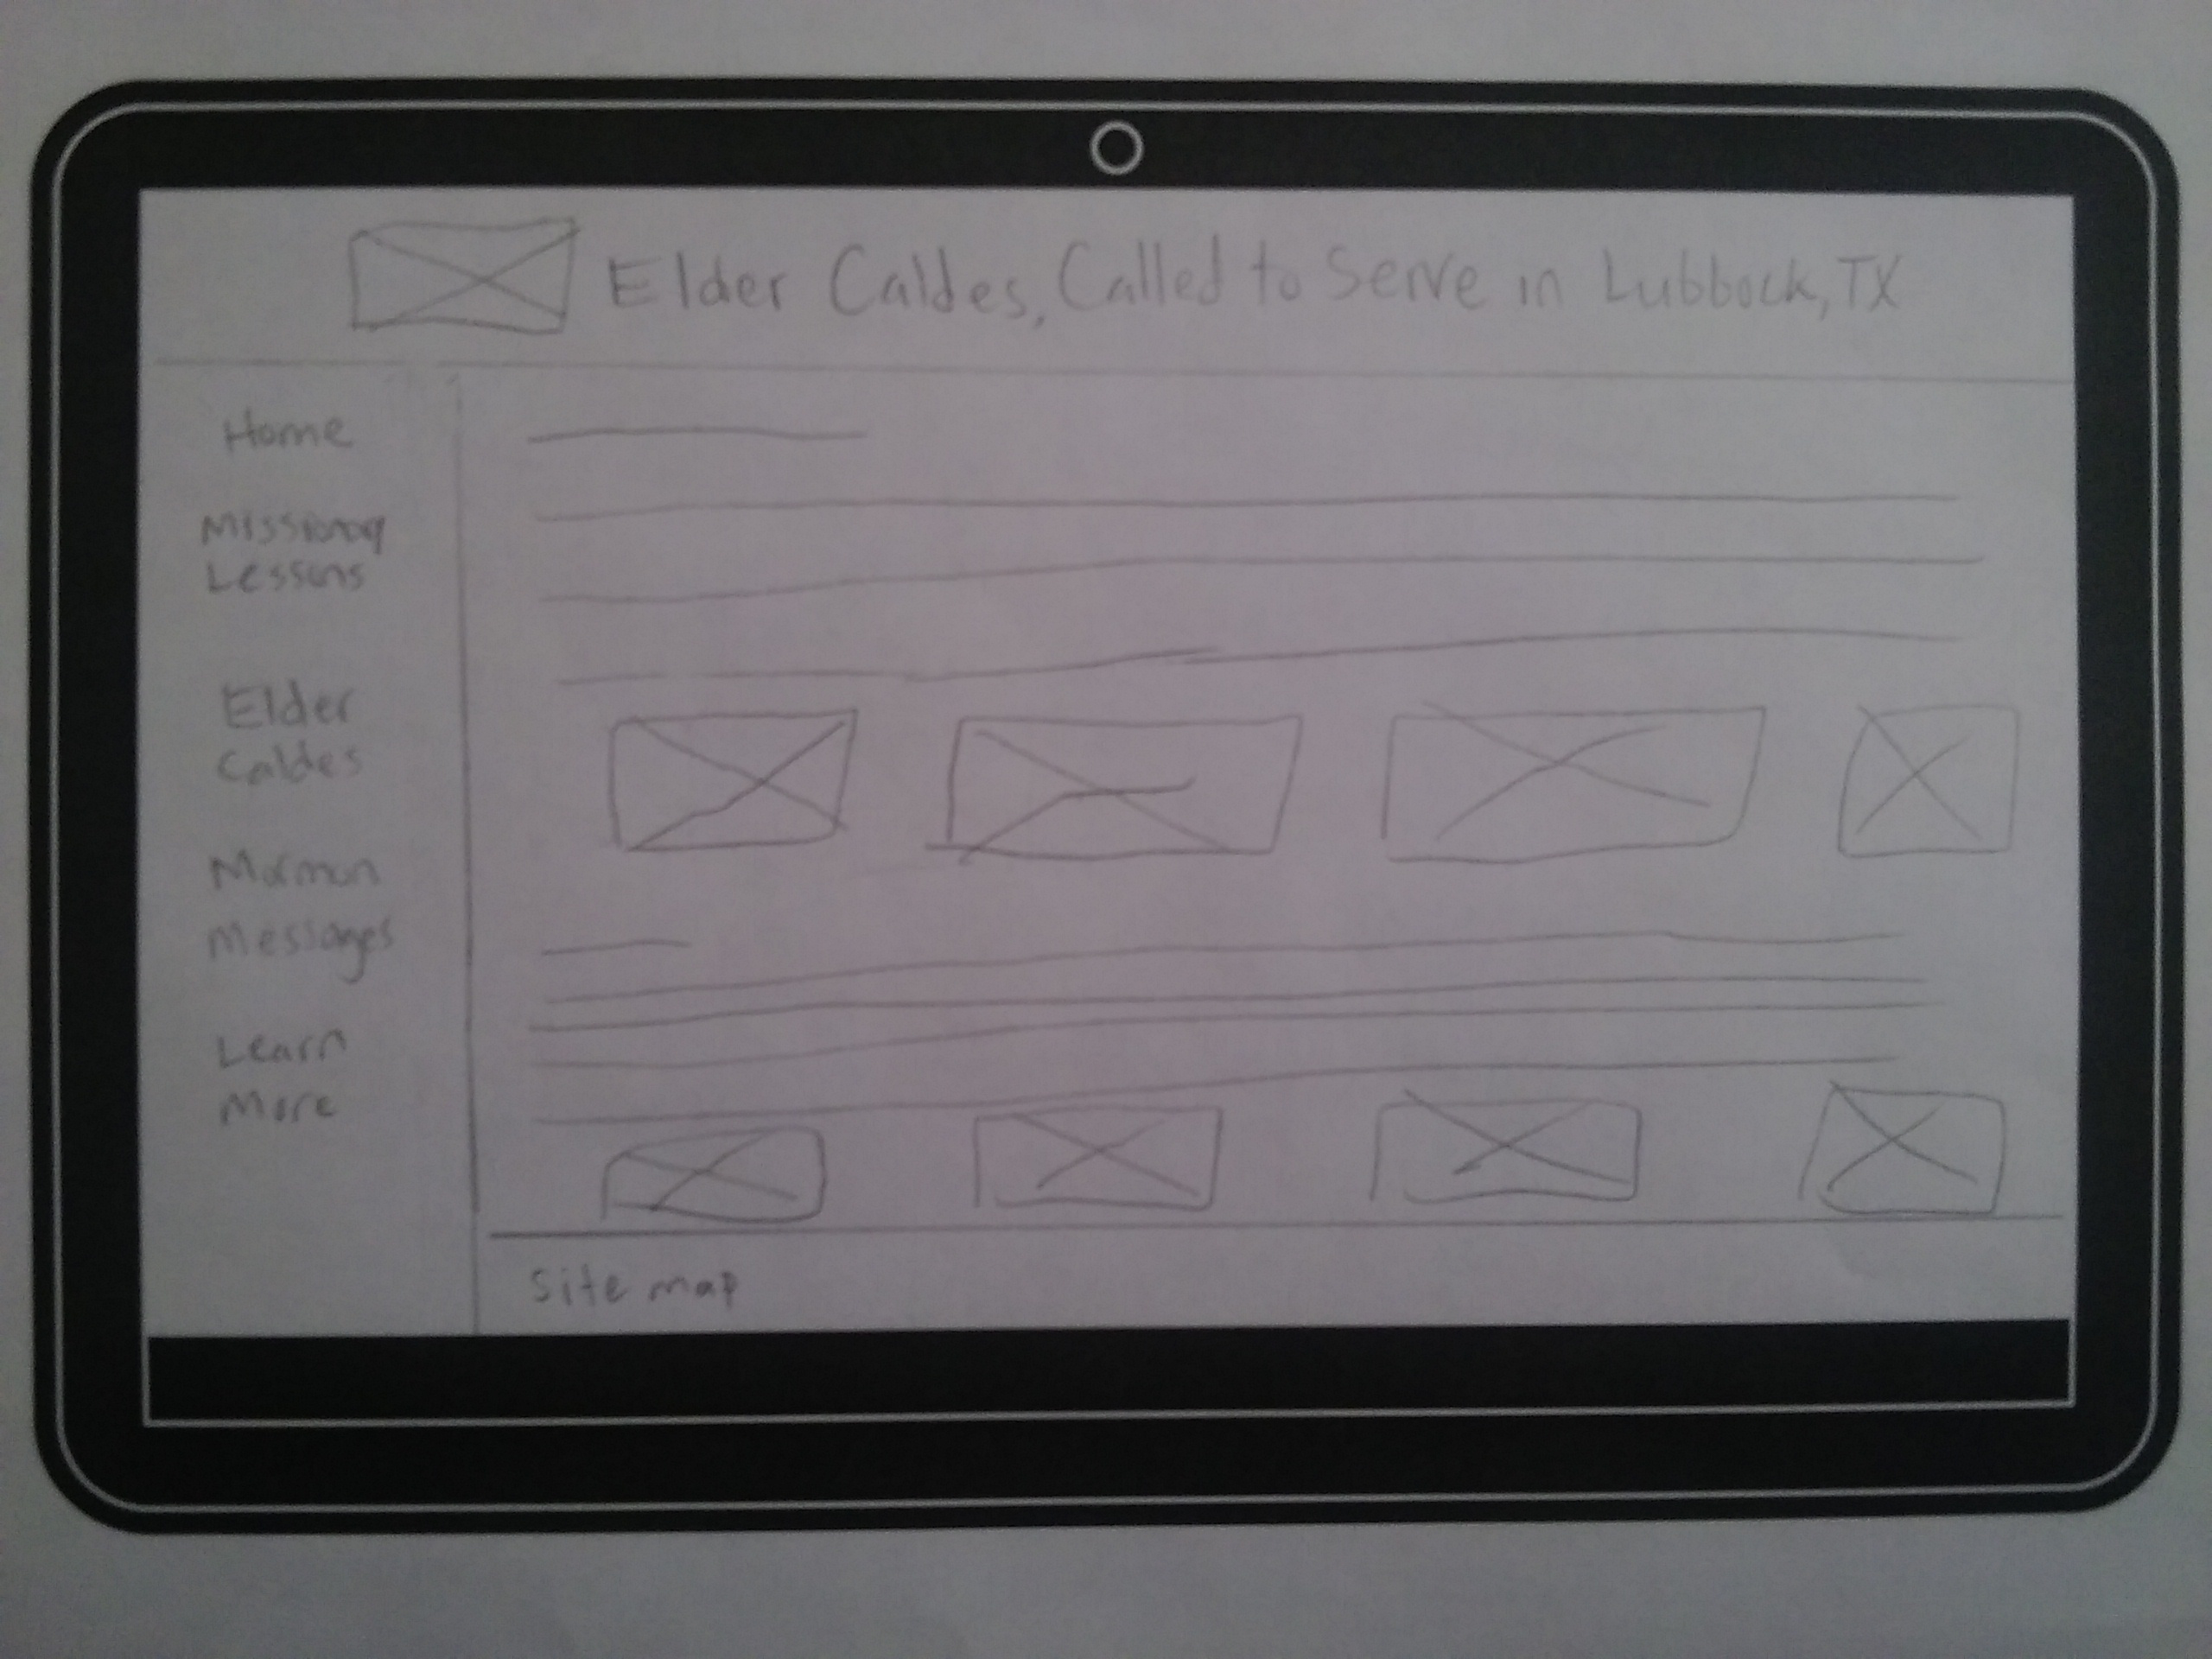 Elder Caldes, Called to Serve in Lubbock, TX
Home
Missionary
Lessons
Elder
Caldes
Mormon
Messages
Learn
More
Site map